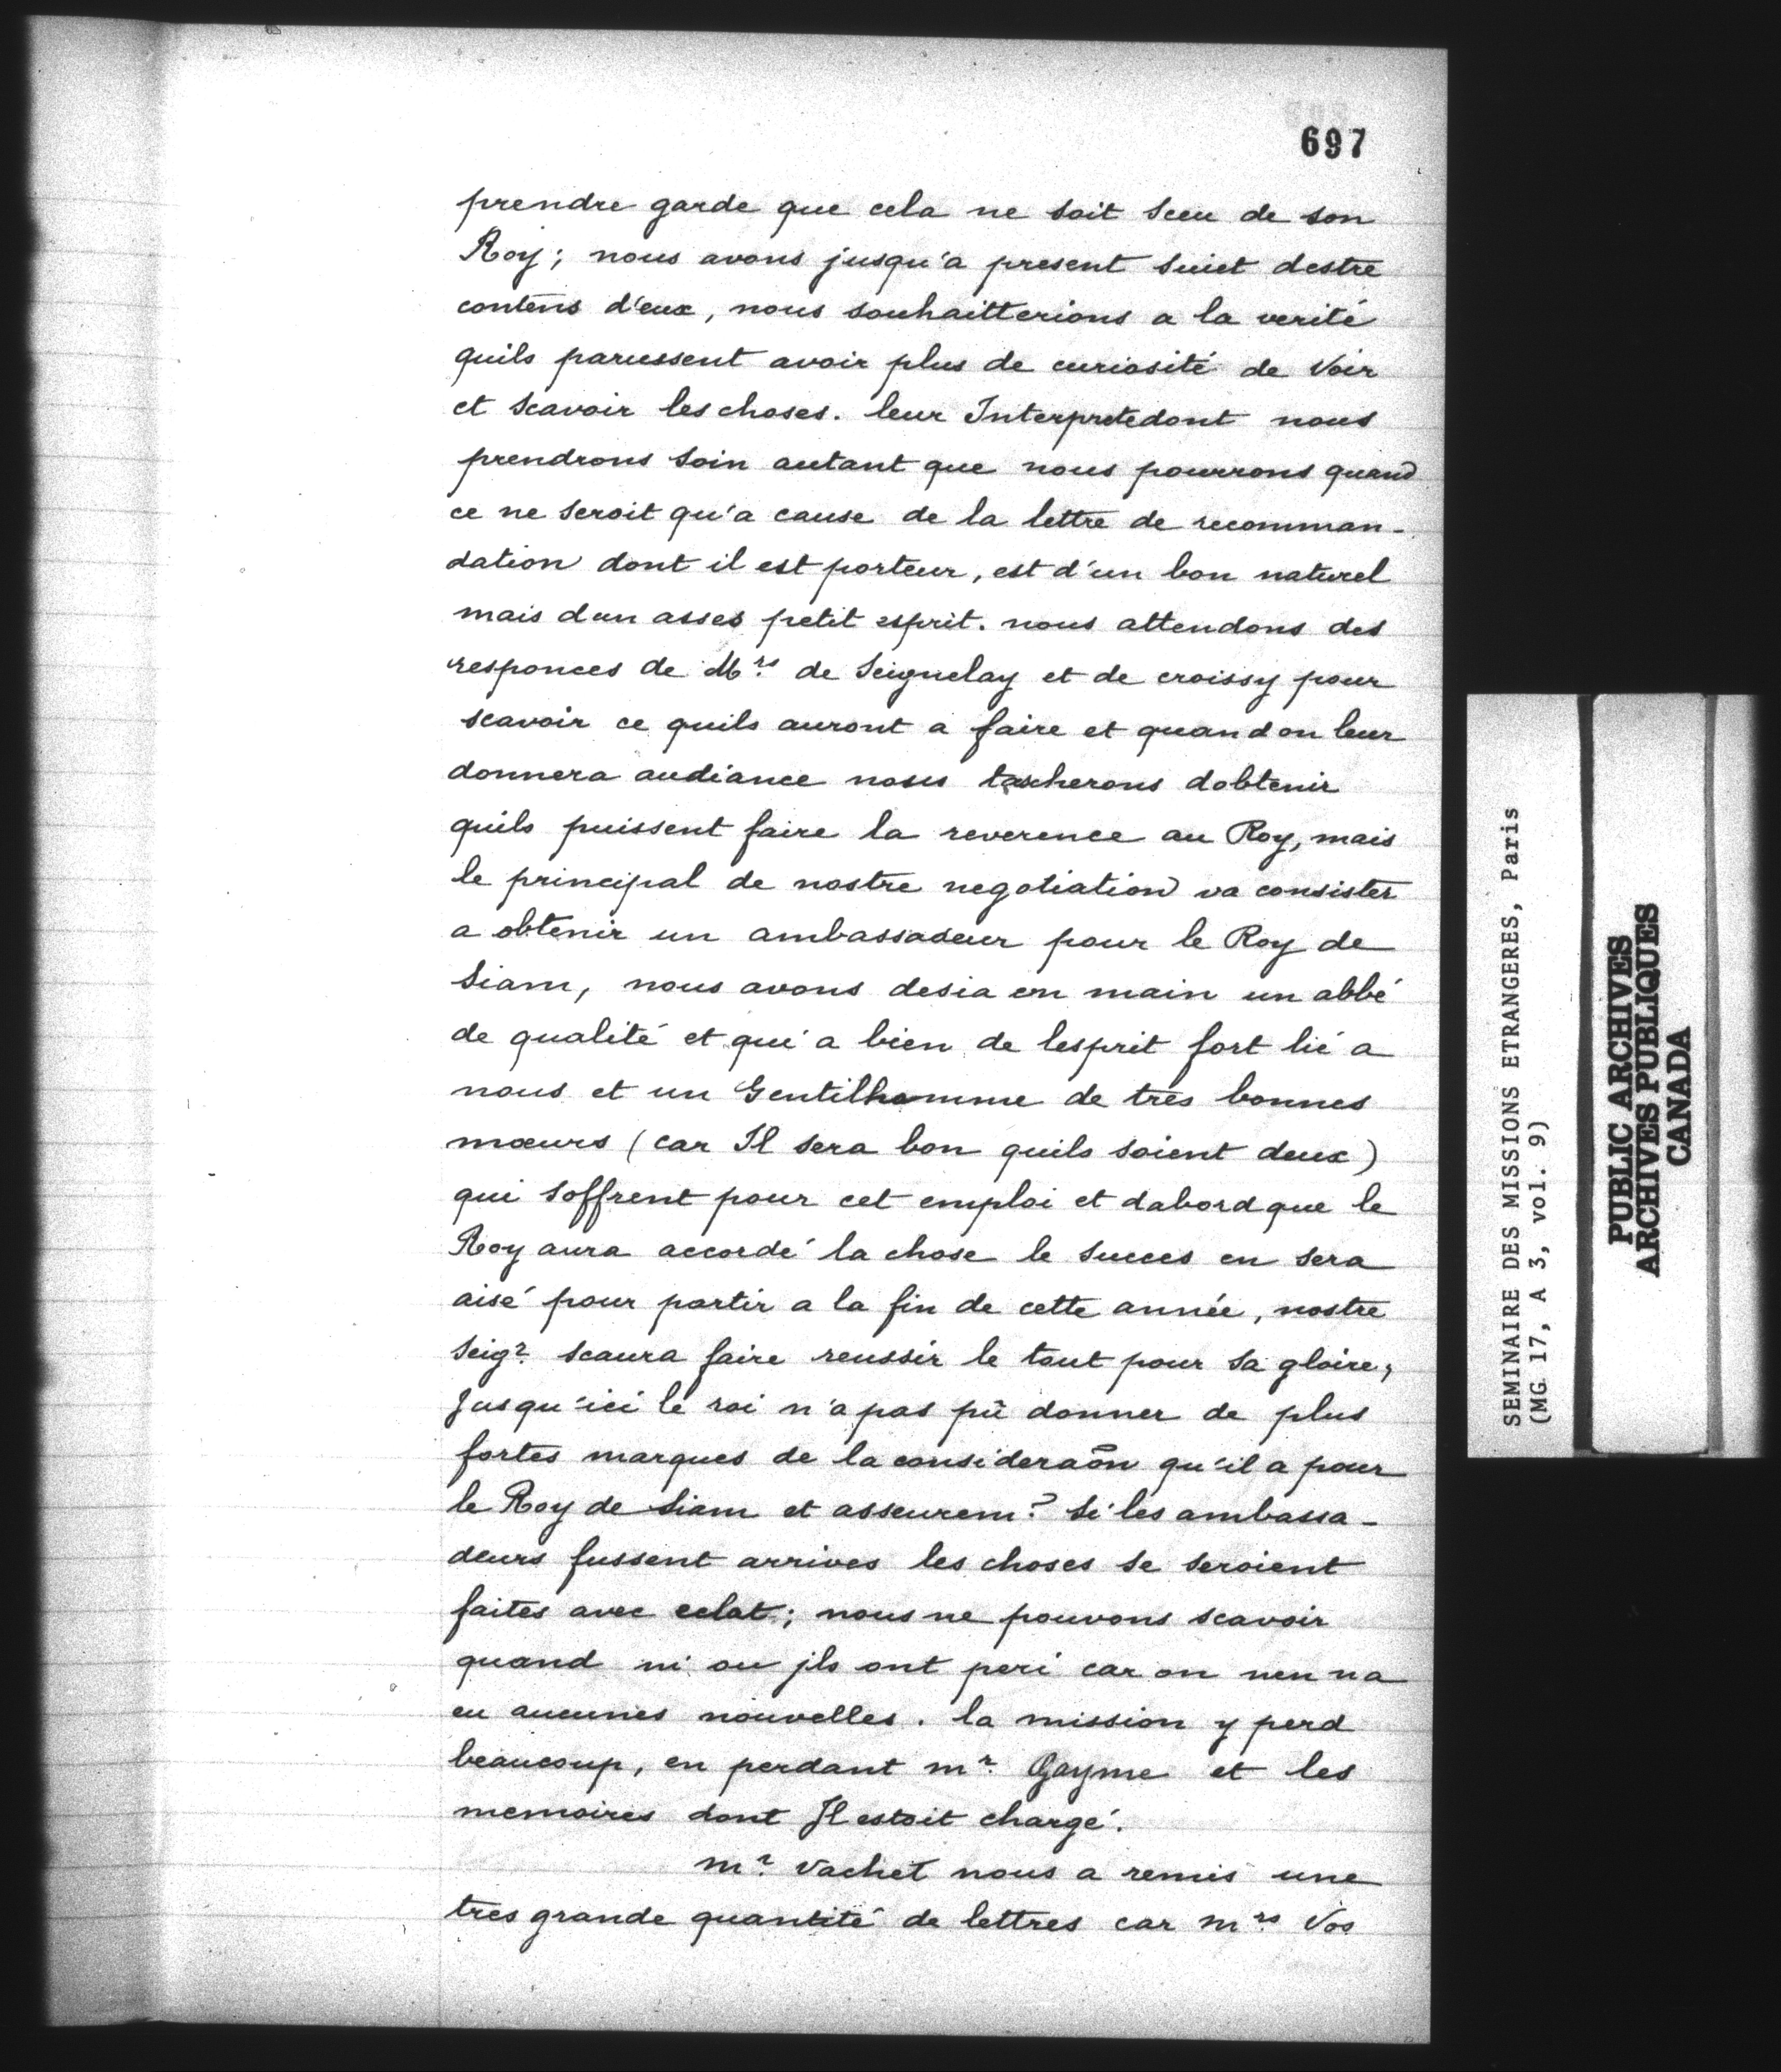 697
prendre garde que cela ne soit sceu de son
Roy; nous avons jusqu'a present suiet destre
contens d'eux, nous souhaitterions a la verité
quils parussent avoir plus de curiosité de voir
et scavoir les choses. leur Interprete dont nous
prendrons soin autant que nous pourrons quand
ce ne seroit qu'a cause de la lettre de recomman-
dation dont il est porteur, est d'un bon naturel
mais dun asses petit esprit. nous attendons des
responces de Mrs. de Seignelay et de croissy pour
scavoir ce quils auront a faire et quand on leur
donnera audiance nous tascherons dobtenir
quils puissent faire la reverence au Roy, mais
le principal de nostre negotiation va consister
a obtenir un ambassadeur pour le Roy de
Siam, nous avons desia en main un abbé
de qualité et qui a bien de lesprit fort lié a
nous et un Gentilhomme de tres bonnes
mœurs (car Il sera bon quils soient deux)
qui soffrent pour cet emploi et dabord que le
Roy aura accordé la chose le succes en sera
aisé pour partir a la fin de cette année, nostre
Seigr. scaura faire reussir le tout pour sa gloire,
Jusqu'ici le roi n'a pas pû donner de plus
fortes marques de la consideraōn qu'il a pour
le Roy de Siam et asseurem? Si les ambassa-
deurs fussent arrives les choses se seroient
faites avec eclat; nous ne pouvons scavoir
quand ni ou jls ont peri car on nen na
eu aucunes nouvelles. la mission y perd
beaucoup, en perdant mr. Gayme et les
memoires dont Il estoit chargé.
mr. Vachet nous a remis une
tres grande quantité de lettres car mrs. Vos
SEMINAIRE DES MISSIONS ETRANGERES, Paris
(MG 17, A 3, vol. 9)
PUBLIC ARCHIVES
ARCHIVES PUBLIQUES
CANADA